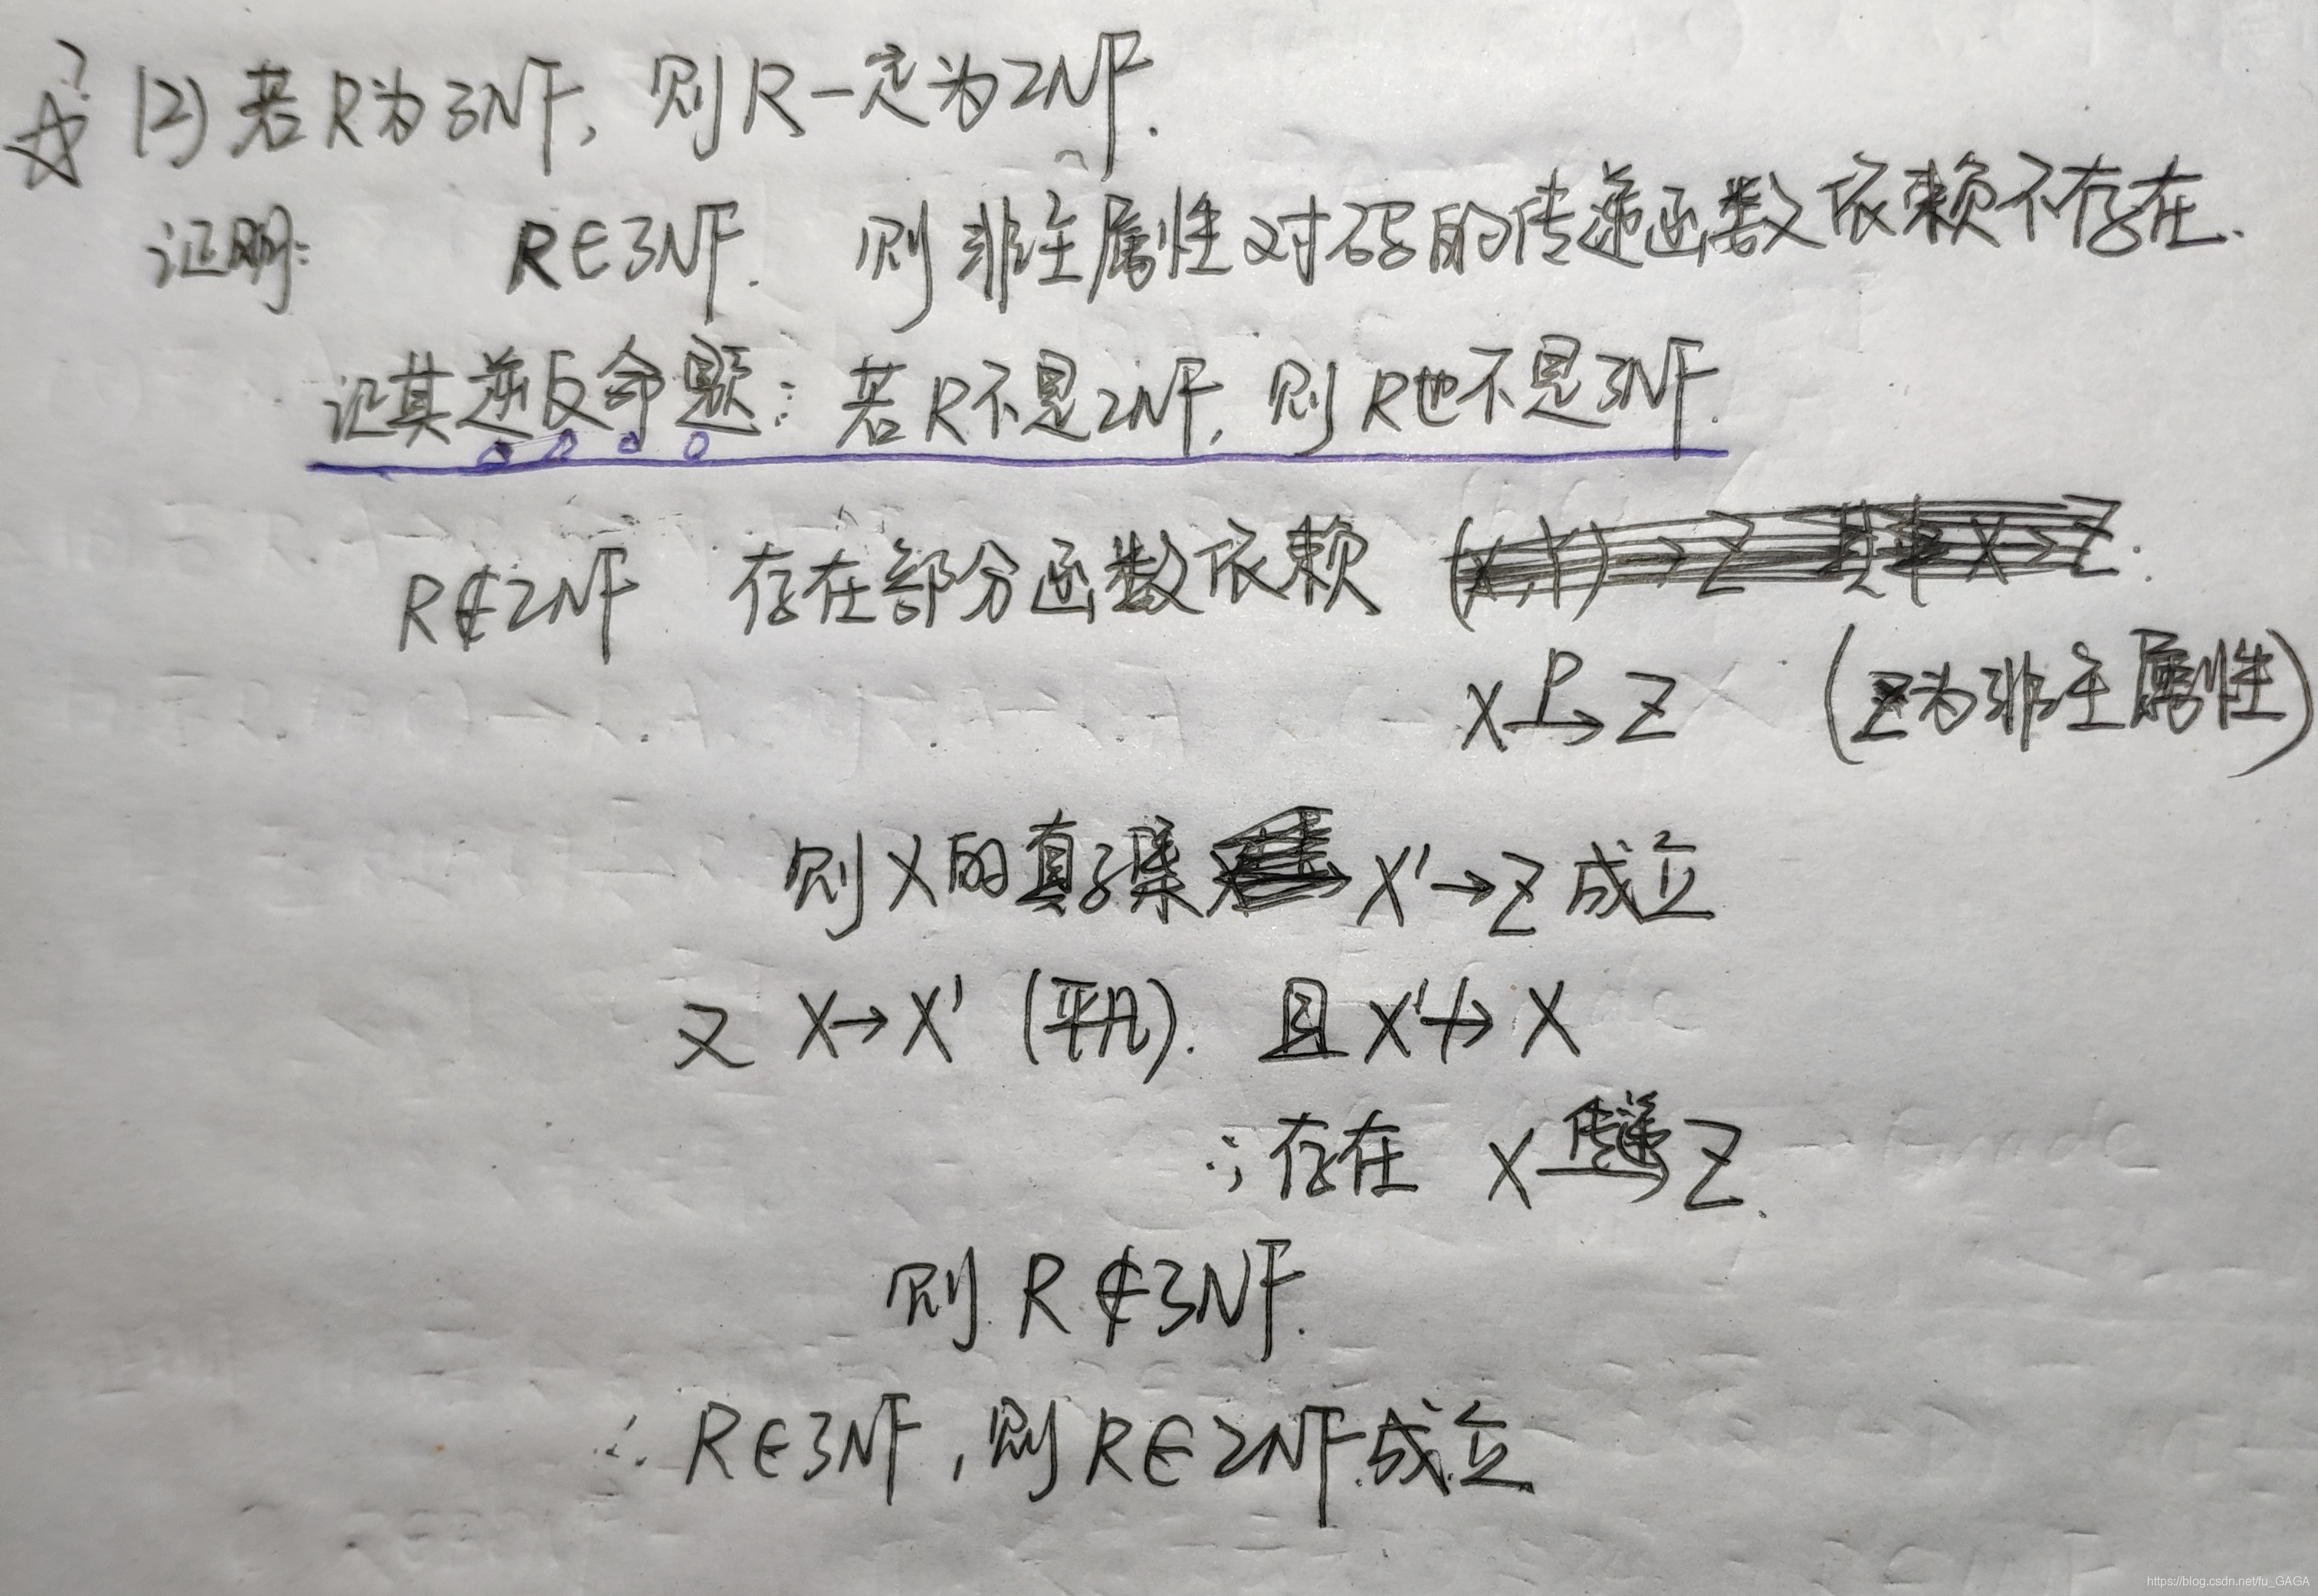 (2) 若R为3NF, 则R一定为2NF.
证明: R∈3NF. 则非主属性对码的传递函数依赖不存在.
证其逆反命题: 若R不是2NF, 则R也不是3NF.
R∉2NF 存在部分函数依赖 (X,Y)→Z 其中 X→Z.
X P→ Z (Z为非主属性)
则X的真子集 X'→Z成立
又 X→X' (平凡). 且 X'↛X
∴存在 X 传递→ Z.
则 R∉3NF.
∴ R∈3NF, 则R∈2NF.成立
https://blog.csdn.net/fu_GAGA